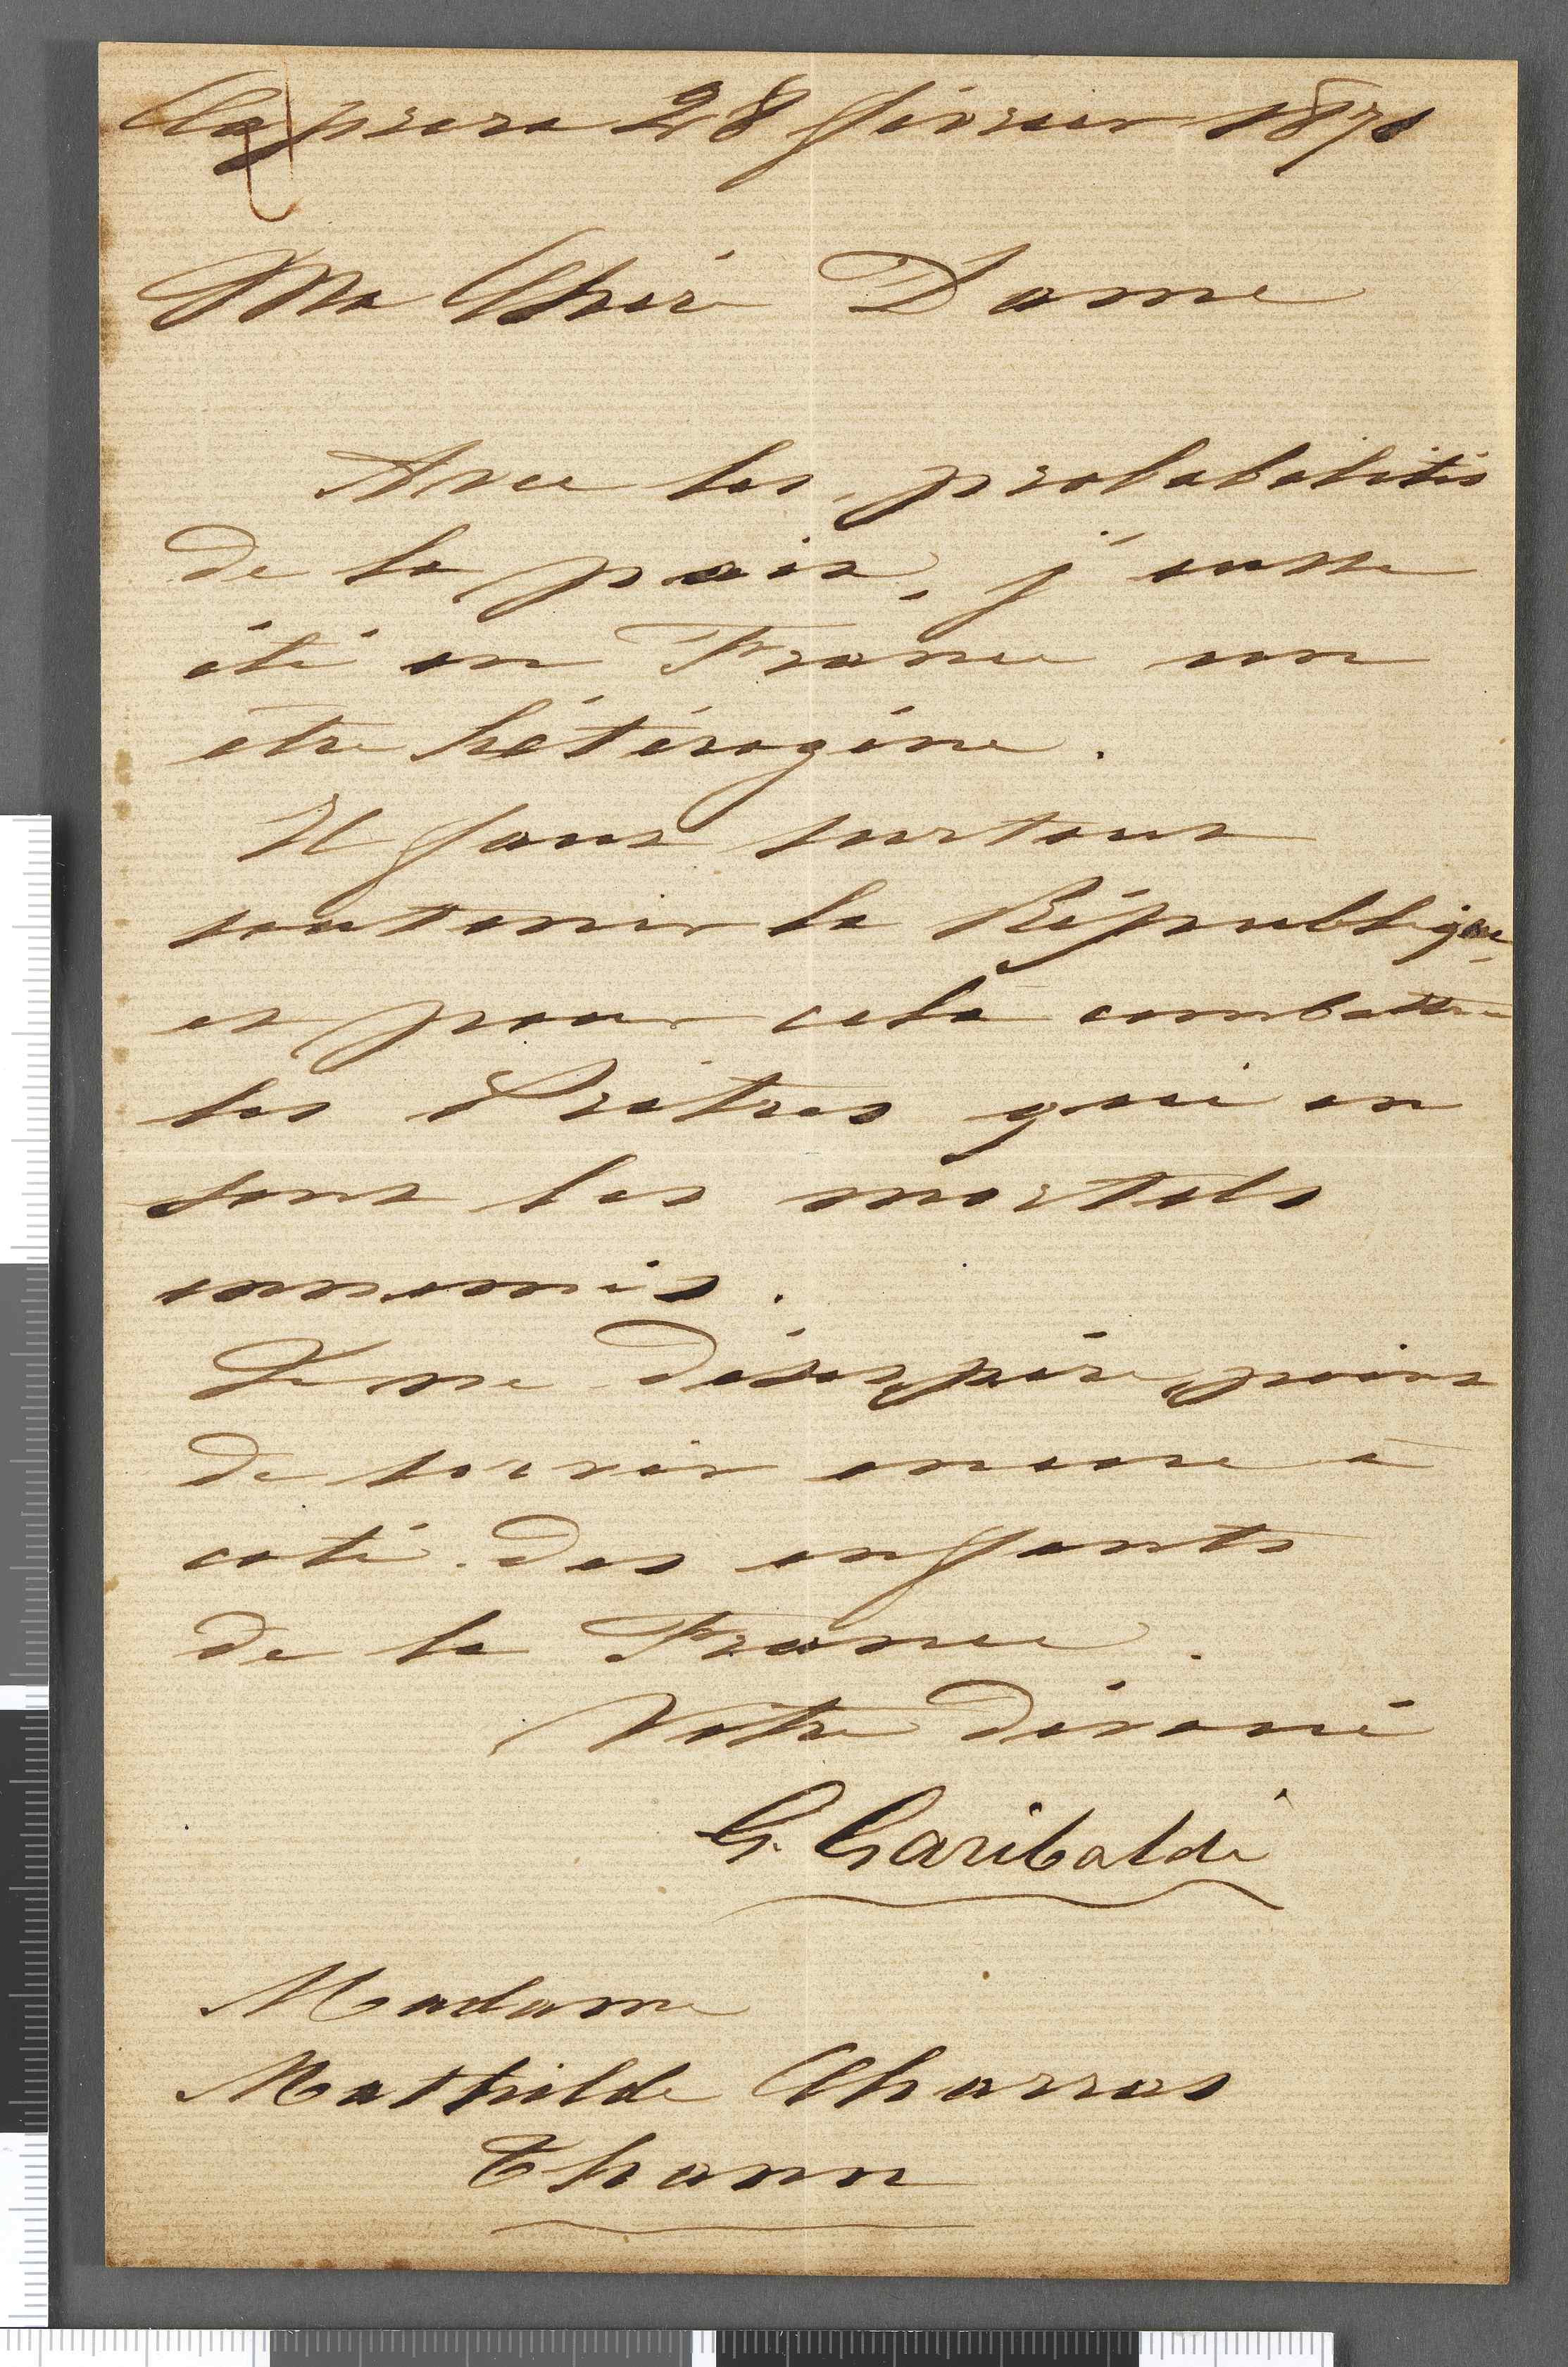 Caprera 28 février 1871
Ma Chère Dame
Avec les probabilités
de la paix, j'eusse
été en France un
être hétérogène.
Il faut surtout
soutenir la République,
et pour celà combattre
les Prêtres qui en
sont les mortels
ennemis.
Je ne désespère point
de servir encore à
coté des enfants
de la France.
Votre dévoué
G. Garibaldi
Madame
Mathilde Charras
Thann